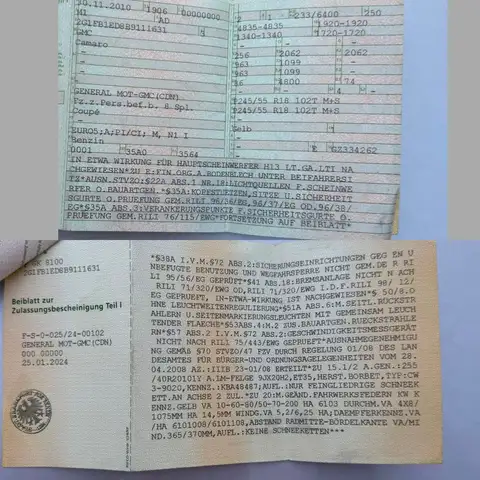 30.11.2010 1906 00000000
M1 AD
2G1FB1ED8B9111631 5
GMC
Camaro
-
-
-
GENERAL MOT-GMC(CDN)
Fz.z.Pers.bef.b. 8 Spl.
Coupé
-
EURO5;A;PI/CI; M, N1 I
Benzin
0001 35A0 3564
2 1 233/6400 250
4835-4835 1920-1920
1340-1340 1720-1720
- - -
256 2062 2062
963 1099
963 1099
86 4800 74
- - 4 -
P245/55 R18 102T M+S
P245/55 R18 102T M+S
-
Gelb
- -
- E GZ334262
IN ETWA WIRKUNG FÜR HAUPTSCHEINWERFER H13 LT.GA,LTI NA
CHGEWIESEN*ZU E:FIN.ORG.A.BODENBLECH UNTER BEIFAHRERSI
TZ*AUSN.STVZO:§22A ABS.1 NR.18:LICHTQUELLEN F.SCHEINWE
RFER O.BAUARTGEN.*§35A:KOPFSTÜTZEN,SITZE U.SICHERHEIT
SGURTE O.PRUEFUNG GEM.RILI 96/36/EG,98/37/EG OD.96/38/
EG*§35A ABS.3:VERANKERUNGSPUNKTE F.SICHERHEITSGURTE O.
PRUEFUNG GEM.RILI 76/115/EWG*FORTSETZUNG AUF BEIBLATT*
SK 8100
2G1FB1ED8B9111631
Beiblatt zur
Zulassungsbescheinigung Teil I
F-S-0-025/24-00102
GENERAL MOT-GMC(CDN)
000 00000
25.01.2024
*§38A I.V.M.§72 ABS.2:SICHERUNGSEINRICHTUNGEN GEG EN U
NBEFUGTE BENUTZUNG UND WEGFAHRSPERRE NICHT GEM.DE R RI
LI 95/56/EG GEPRÜFT*§41 ABS.18:BREMSANLAGE NICHT N ACH
RILI 71/320/EWG OD,RILI 71/120/EWG I.D.F.RILI 98/ 12/
EG GEPRUEFT, IN-ETWA-WIRKUNG IST NACHGEWIESEN*§ 50/8.O
HNE LEUCHTWEITENREGULIERUNG*§51A ABS.6:M.SEITL.RÜCKST
RAHLERN U.SEITENMARKIERUNGSLEUCHTEN MIT GEMEINSAM LEUCH
TENDER FLAECHE*§53ABS.4:M.2 ZUS.BAUARTGEN.RUECKSTRAHLE
RN*§57 ABS.2 I.V.M.§72 ABS.2:GESCHWINDIGKEITSMESSGERÄT
NICHT NACH RILL 75/443/EWG GEPRUEFT*AUSNAHMEGENEHMIGU
NG GEMÄß §70 STVZO/47 FZV DURCH REGELUNG 01/08 DES LAN
DESAMTES FÜR BÜRGER-UND ORDNUNGSAGELEGENHEITEN VOM 28.
04.2008 AZ.:IIIB 23-01/08 ERTEILT*ZU 15.1/2 A.GEN.:255
/40R20101Y A.LM-FELGE 9JX20H2,ET35,HERST.BORBET,TYP:CW
3-9020,KENNZ.:KBA48487;AUFL:NUR FEINGLIEDRIGE SCHNEEK
ETT.AN ACHSE 2 ZUL.*ZU 20:M.GEÄND.FAHRWERKSFEDERN KW K
ENNZ.GELB VA 10-60-80/50-70-200 HA 6103 DURCHM.VA 4X8/
1075MM HA 14,5MM WINDG.VA 5,2/6,25 HA;DAEMPFERKENNZ.VA
/HA 6101008/6101108,ABSTAND RADMITTE-BÖRDELKANTE VA/MI
ND.365/370MM,AUFL.:KEINE SCHNEEKETTEN***